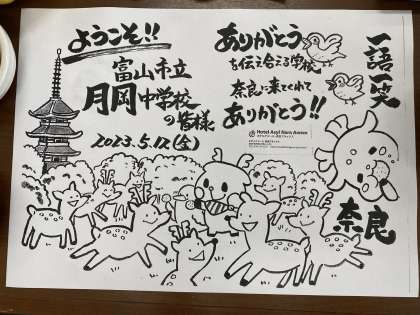 ようこそ!!
富山市立
月岡中学校
の皆様
2023.5.12(金)
ありがとう
を伝え合える学校
奈良に来てくれて
ありがとう!!
Hotel Asyl Nara Annex
一語一笑
奈良